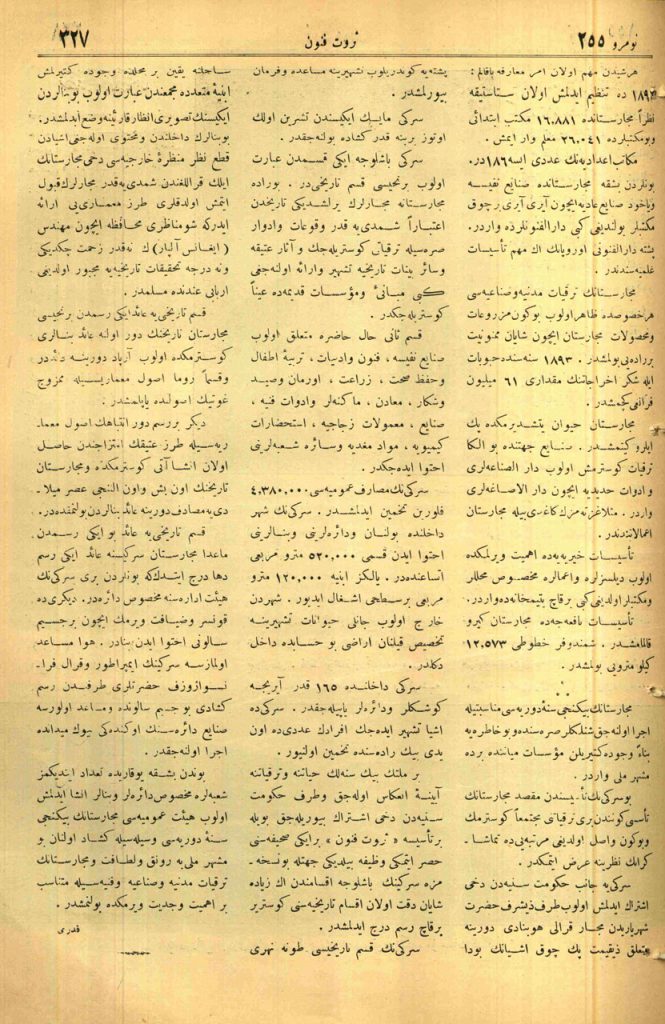 نومرو ٢٥٥
ثروت فنون
٣٢٧
هر شیدن مهم اولان امر معارفه باقالم :
١٨٩٣ ده تنظیم ایدلمش اولان ستاتستیقه
نظراً مجارستانده ١٦.٨٨١ مکتب ابتدائی
وبومکتبلرده ٢٦.٠٤١ معلم وار ایمش .
مکاتب اعدادیه‌نك عددی ایسه ١٨٦ در.
بونلردن بشقه مجارستانده صنایع نفیسه
ویاخود صنایع عادیه ایچون آیری آیری بر چوق
مکتبلر بولندیغی کبی دارالفنونلرده واردر.
پشته دارالفنونی اوروپانك اك مهم تأسیسات
علمیه‌سندندر .
مجارستانك ترقیات مدنیه وصناعیه‌سی
هر خصوصده ظاهر اولوب بوکون مزروعات
ومحصولات مجارستان ایچون شایان ممنونیت
بر راده‌یی بولمشدر . ١٨٩٣ سنه‌سنده حبوبات
ایله شکر اخراجاتنك مقداری ٦١ میلیون
فرانقی کچمشدر .
مجارستان حیوان یتشدیرمکده پك
ایلرو کیتمشدر . صنایع جهتنده بو الکا
ترقیات کوسترمش اولوب دار الصناعه‌لری
و ادوات حدیدیه ایچون دار الاصاغه‌لری
واردر . مثلا غزته‌مزك کاغدی بیله مجارستان
اعمالاتندندر .
تأسیسات خیریه‌یه ده اهمیت ویرلمکده
اولوب دیلسزلره واعمالره مخصوص محللر
ومکتبلر اولدیغی کبی برقاچ یتیمخانه ده واردر .
تأسیسات نافعه‌جه ده مجارستان کیرو
قالمامشدر . شمندوفر خطوطی ١٢.٥٧٣
کیلومترویی بولمشدر .
مجارستانك بیکنجی سنهٔ دوریه‌سی مناسبتیله
اجرا اولنه‌جق شنلکلر صره‌سنده وبو خاطره‌یه
بناءً وجوده کتیریلن مؤسسات میاننده برده
مشهر ملی واردر .
بو سرکی‌نك تأسیسندن مقصد مجارستانك
تأسی کونندن بری ترقیاتنی مجتمعاً کوسترمك
وبوکون واصل اولدیغی مرتبه‌یی ده تماشا ـ
کرانك نظرینه عرض ایتمکدر .
سرکی‌یه جانب حکومت سنیه‌دن دخی
اشتراك ایدلمش اولوب طرف ذیشرف حضرت
شهریاریدن مجار قرالی هونیادی دورینه
متعلق ذیقیمت پك چوق اشیانك بودا
پشته‌یه کوندریلوب تشهیرینه مساعده وفرمان
بیورلمشدر .
سرکی مایسك ایکیسندن تشرین اولك
اوتوز برینه قدر کشاده بولنه‌جقدر .
سرکی باشلوجه ایکی قسمدن عبارت
اولوب برنجیسی قسم تاریخی در . بوراده
مجارستانه مجارلرك یرلشدیکی تاریخدن
اعتباراً شمدی‌یه قدر وقوعات وادوار
صره‌سیله ترقیاتی کوستریله‌جك و آثار عتیقه
وسائر بینات تاریخیه تشهیر وارائه اولنه‌جغی
کبی مبانئ ومؤسسات قدیمه‌ده عیناً
کوستریله‌جکدر .
قسم ثانی حال حاضره متعلق اولوب
صنایع نفیسه ، فنون وادبیات ، تربیهٔ اطفال
وحفظ صحت ، زراعت ، اورمان وصید
وشکار ، معادن ، ماکنه‌لر وادوات فنیه ،
صنایع ، معمولات زجاجیه ، استحضارات
کیمیویه ، مواد مغدیه وسائره شعبه‌لرینی
احتوا ایده‌جکدر .
سرکی‌نك مصارف عمومیه‌سی ٤.٣٨٠.٠٠٠
فلورین تخمین ایدلمشدر . سرکی‌نك شهر
داخلنده بولنان ودائره‌لرینی وبنالرینی
احتوا ایدن قسمی ٥٢٠,٠٠٠ مترو مربعی
اتساعنده‌در . یالکز ابنیه ١٢٠,٠٠٠ مترو
مربعی بر سطحی اشغال ایدیور . شهردن
خارج اولوب جانلی حیوانات تشهیرینه
تخصیص قیلنان اراضی بو حسابده داخل
دکلدر .
سرکی داخلنده ١٦٥ قدر آیریجه
کوشکلر ودائره‌لر یاپیله‌جقدر . سرکی‌ده
اشیا تشهیر ایده‌جك افرادك عددی ده اون
یدی بیك راده‌سنده تخمین اولنیور .
بر ملتك بیك سنه‌لك حیاتنه وترقیاتنه
آیینهٔ انعکاس اوله‌جق وطرف حکومت
سنیه‌دن دخی اشتراك بیوریله‌جق بویله
بر تأسیسه « ثروت فنون » برایکی صحیفه‌سنی
حصر ایتمکی وظیفه بیلدیکی جهتله بونسخه ـ
مزه سرکینك باشلوجه اقسامندن اك زیاده
شایان دقت اولان اقسام تاریخیه‌سنی کوستریر
برقاچ رسم درج ایدلمشدر .
سرکی‌نك قسم تاریخیسی طونه نهری
ساحلنه یقین بر محلده وجوده کتیرلمش
ابنیهٔ متعدده مجمعندن عبارت اولوب بو بنالردن
ایکیسنك تصویری انظار قارئینه وضع ایدلمشدر.
بوبنالرك داخلندن ومحتوی اوله‌جغی اشیادن
قطع نظر منظرهٔ خارجیه‌سی دخی مجارستانك
ایلك قراللغندن شمدی‌یه قدر مجارلرك قبول
ایتمش اولدقلری طرز معماری‌یی ارائه
ایدرکه شو مناظری محافظه ایچون مهندس
( ایغناس آلپار ) ك نه‌قدر زحمت چکدیکی
ونه درجه تحقیقات تاریخیه‌یه مجبور اولدیغی
اربابی عندنده مسلمدر .
قسم تاریخی‌یه عائد ایکی رسمدن برنجیسی
مجارستان تاریخنك دور اولنه عائد بنالری
کوسترمکده اولوب آرپاد دورینه دائر در
وقسماً روما اصول معماریسیله ممزوج
غوتیك اصولنده یاپلمشدر .
دیکر بر رسم دور انتباهك اصول معما ـ
ریه‌سیله طرز عتیقك امتزاجندن حاصل
اولان انشا آتی کوسترمکده ومجارستان
تاریخنك اون بش واون التنجی عصر میلا ـ
دی‌یه مصادف دورینه عائد بنالردن بولنمقده‌در.
قسم تاریخی‌یه عائد بو ایکی رسمدن
ماعدا مجارستان سرکیسنه عائد ایکی رسم
دها درج ایتدك که بونلردن بری سرکی‌نك
هیئت اداره‌سنه مخصوص دائره‌در. دیکری ده
قونسر وضیافت ویرمك ایچون بر جسیم
سالونی احتوا ایدن بنادر . هوا مساعد
اولمازسه سرکینك ایمپراطور وقرال فرا ـ
نسوا ژوزف حضرتلری طرفندن رسم
کشادی بو جسیم سالونده ومساعد اولورسه
صنایع دائره‌سنك اوکنده‌کی بیوك میدانده
اجرا اولنه‌جقدر .
بوندن بشقه یوقاریده تعداد ایتدیکمز
شعبه‌لره مخصوص دائره‌لر وبنالر انشا ایدلمش
اولوب هیئت عمومیه‌سی مجارستانك بیکنجی
سنهٔ دوریه‌سی وسیله‌سیله کشاد اولنان بو
مشهر ملی‌یه رونق ولطافت ومجارستانك
ترقیات مدنیه وصناعیه وفنیه‌سیله متناسب
بر اهمیت وجدیت ویرمکده بولنمشدر .
قدری